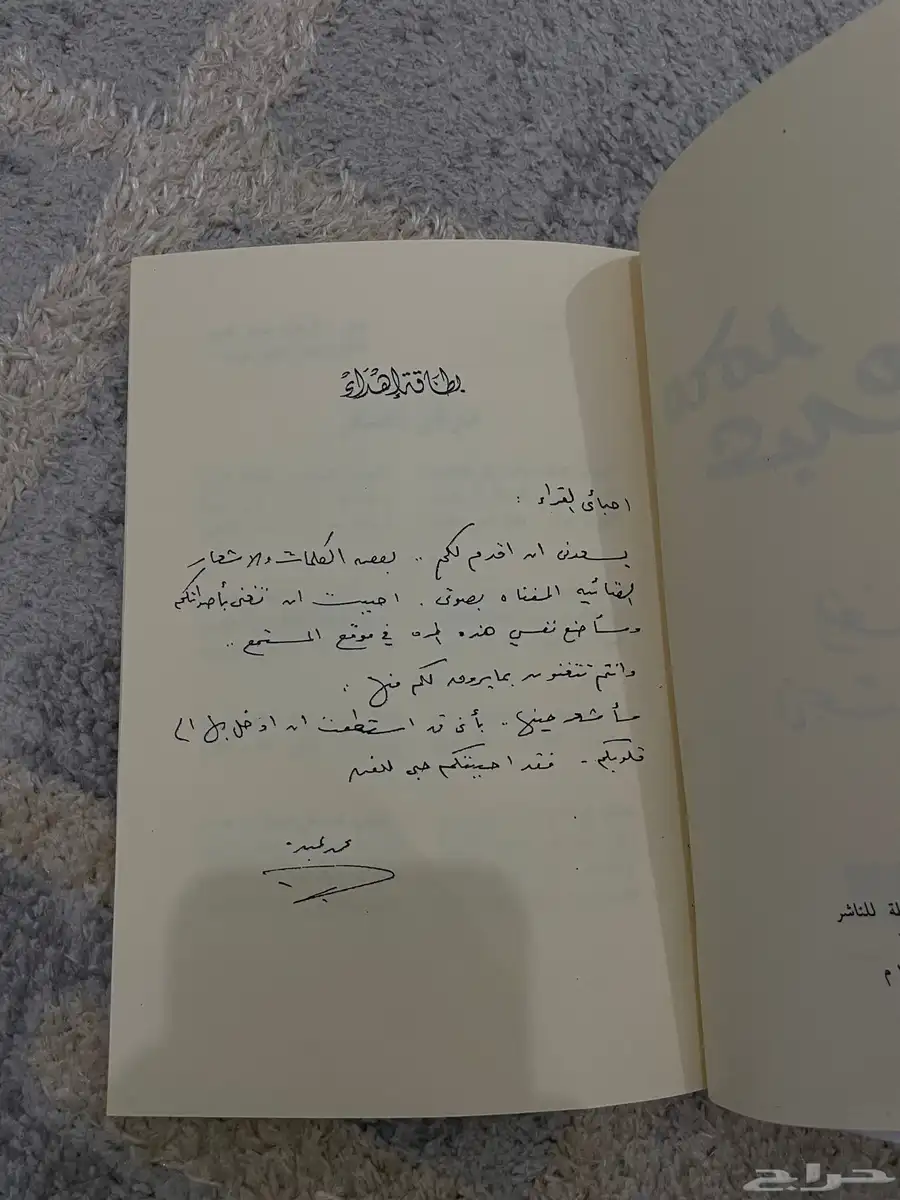 بطاقة إهداء
احبائي القراء :
يسعدني ان اقدم لكم .. بعض الكلمات والاشعار
الغنائيه المغناه بصوتي . احببت ان تتغنى بأصواتكم
وسأضع نفسي هذه المره في موقع المستمع ..
وانتم تتغنون بما يروق لكم منها :
سأشعر حينها .. بأني قد استطعت ان ادخل بها الى
قلوبكم - فقد احببتكم حبي للفن
محمد عبده
محمد
عبده
للناشر
م
حراج